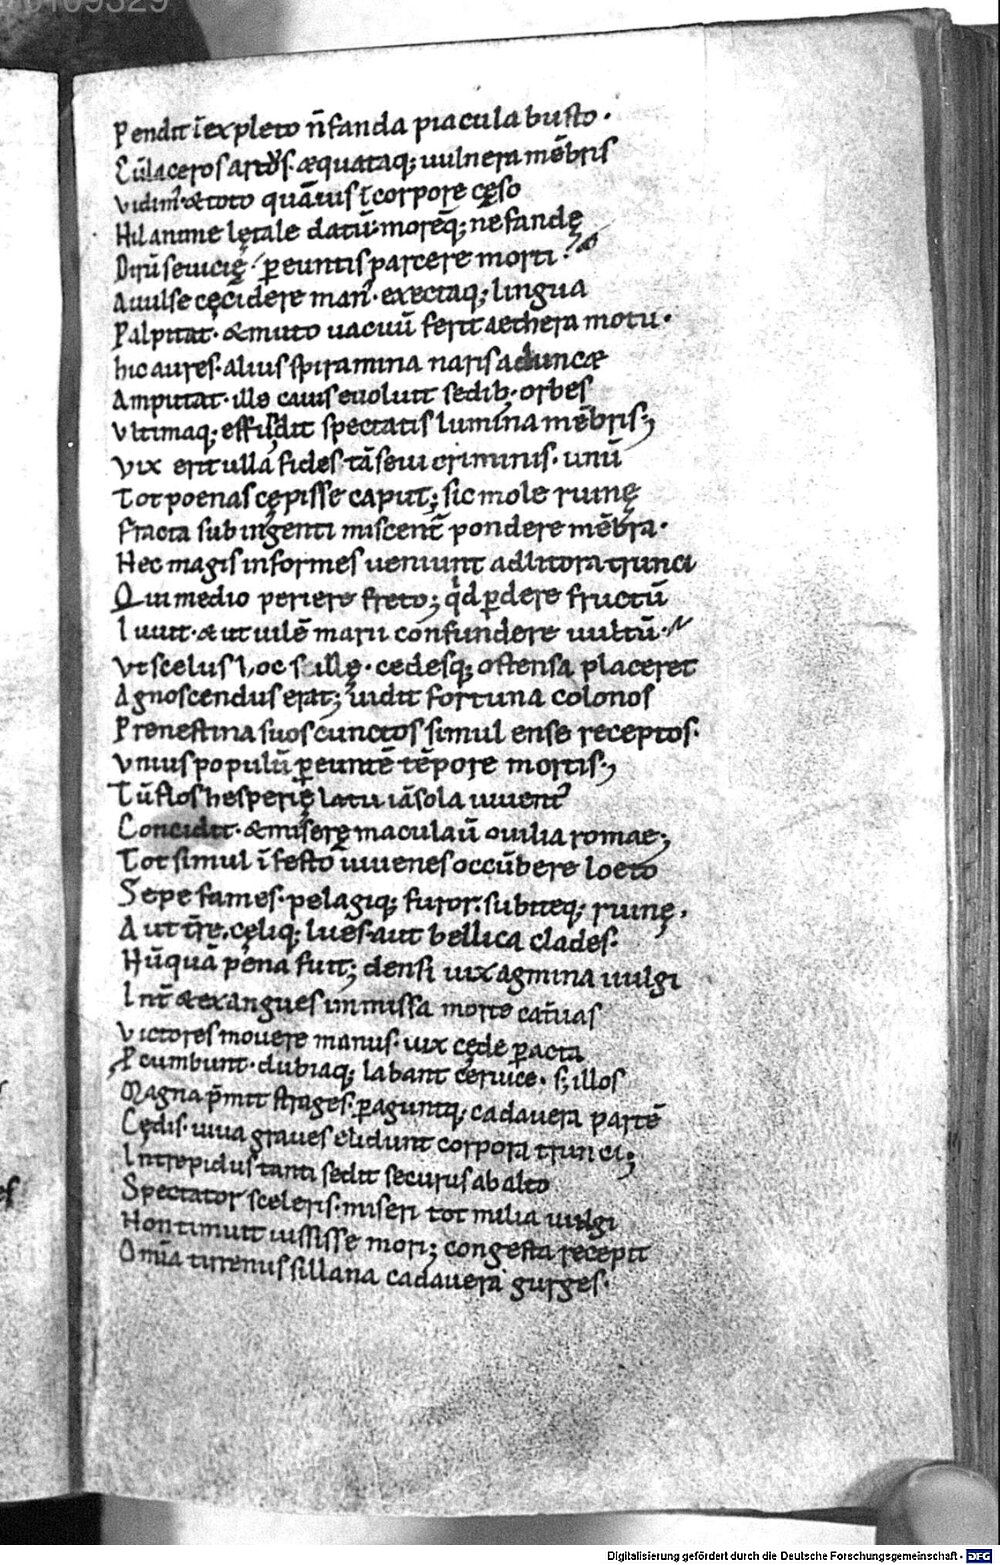 70109329
Pendit ĩexpleto ñfanda piacula busto.
Cũ laceros artus. æquataq; uulnera mẽbris
vidim᷒. & toto quãuis ĩ corpore cęso
Nil animę lętale datũ. moreq; nefandę
Dirũ seuicię. ꝑeuntis parcere morti.
Auulse cęcidere man᷒. exectaq; lingua
Palpitat. & muto uacuũ ferit aethera motu.
hic aures. alius spiramina naris aduncæ
Amputat. ille cauis euoluit sedib; orbes
vltimaq; effũdit spectatis lumina mẽbris;
vix erit ulla fides. tã seui criminis. unũ
Tot poenas cępisse caput; sic mole ruinę
fracta sub ingenti miscent̃ pondere mẽbra.
Nec magis informes ueniunt ad litora trunci
Qui medio periere freto; qd ꝑdere fructũ
Iuuit. & ut uilẽ marii confundere uultũ.
vt scelus hoc sillę. cedesq; ostensa placeret
Agnoscendus erat; uidit fortuna colonos
Prenestina suos cunctos simul ense receptos.
vnius populũ ꝑeuntẽ tẽpore mortis;
Tũ flos hesperię latii iã sola iuuent᷒
Concidit. & miserę maculauit ouilia romae;
Tot simul ĩfesto iuuenes occũbere loeto
Sepe fames. pelagiq; furor. subiteq; ruinę.
Aut tr̃e. cęliq; lues. aut bellica clades.
Nũquã pena fuit; densi uix agmina uulgi
Int̃ & exangues immissa morte cat̃uas
victores mouere manus. uix cęde ꝑacta
Pcumbunt. dubiaq; labant ceruice. s; illos
Magna p̃mit strages. ꝑaguntq; cadauera partẽ
Cędis. uiua graues elidunt corpora trunci;
Intrepidus tanti sedit securus ab alto
Spectator sceleris. miseri tot milia uulgi
Non timuit iussisse mori; congesta recepit
Omĩa tirenus sillana cadauera gurges.
Digitalisierung gefördert durch die Deutsche Forschungsgemeinschaft - DFG